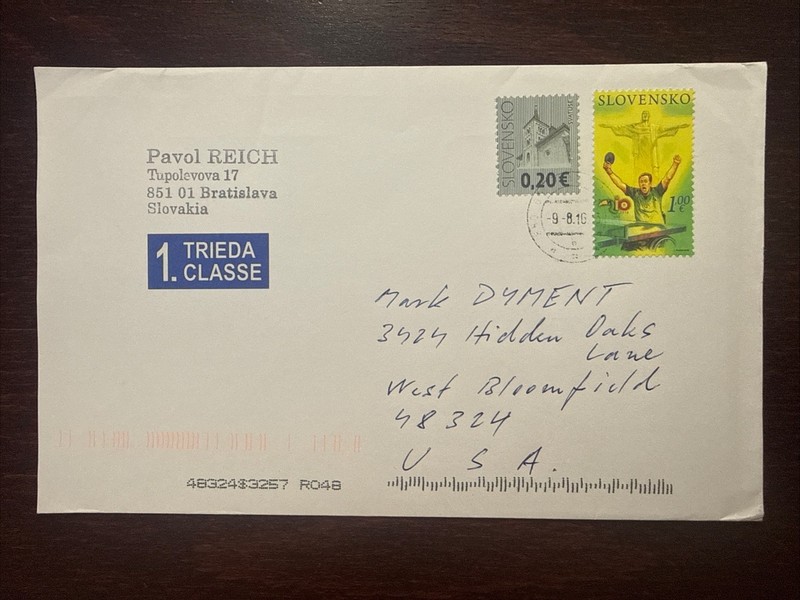 Pavol REICH
Tupolevova 17
851 01 Bratislava
Slovakia
1. TRIEDA
CLASSE
SLOVENSKO
0,20 €
SLOVENSKO
1.00
€
-9.-8.16
Mark DYMENT
3424 Hidden Oaks
Lane
West Bloomfield
48324
U S A.
48324$3257 R048